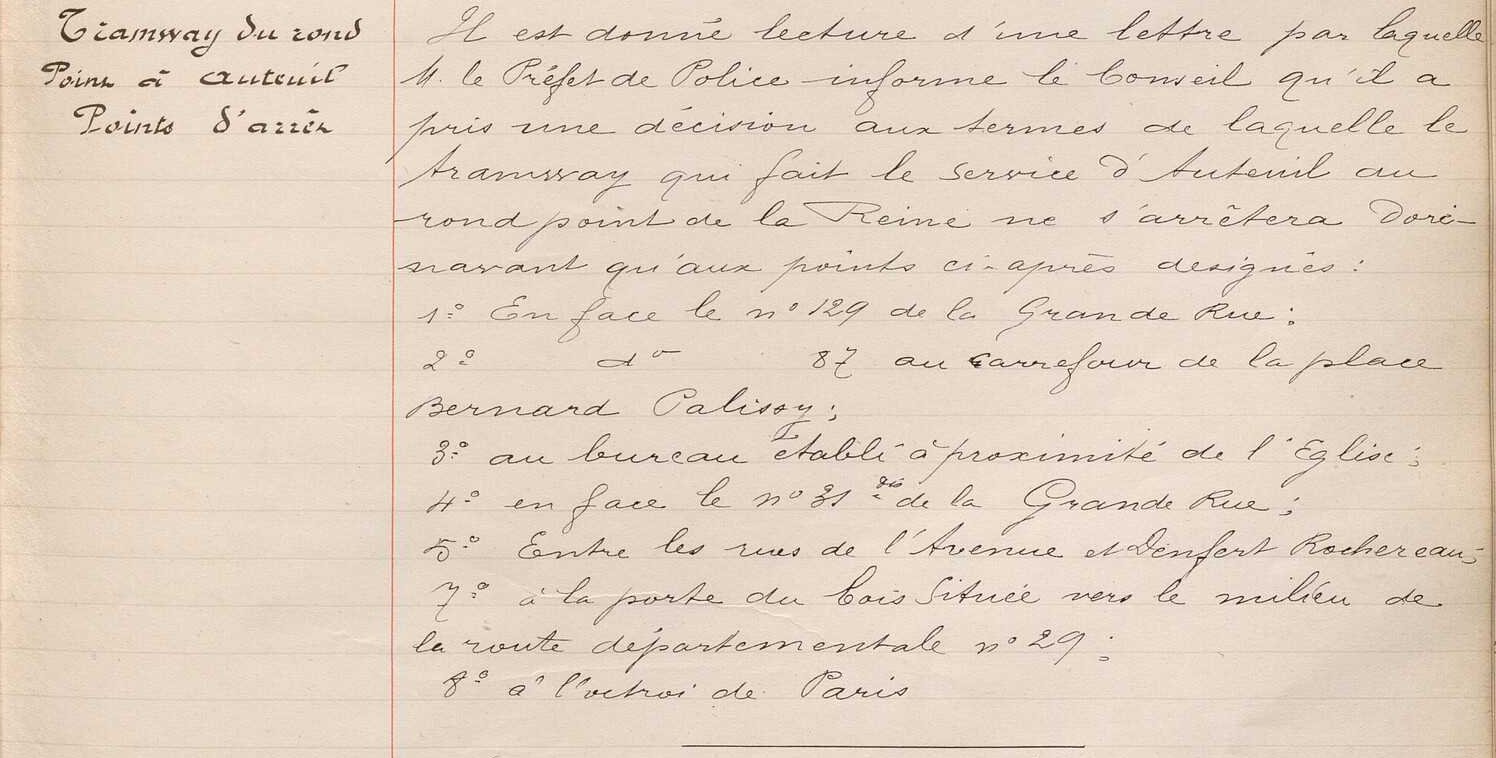 Tramway du rond
Point à Auteuil
Points d'arrêt
Il est donné lecture d'une lettre par laquelle
M. le Préfet de Police informe le Conseil qu'il a
pris une décision aux termes de laquelle le
tramway qui fait le service d'Auteuil au
rond point de la Reine ne s'arrêtera Doré-
navant qu'aux points ci-après designés :
1º En face le nº 129 de la Grande Rue ;
2º dº 87 au carrefour de la place
Bernard Palissy ;
3º au bureau établi à proximité de l'Eglise ;
4º en face le nº 31 bis de la Grande Rue ;
5º Entre les rues de l'Avenue et Denfert Rochereau ;
7º à la porte du bois Située vers le milieu de
la route départementale nº 29 ;
8º à l'octroi de Paris